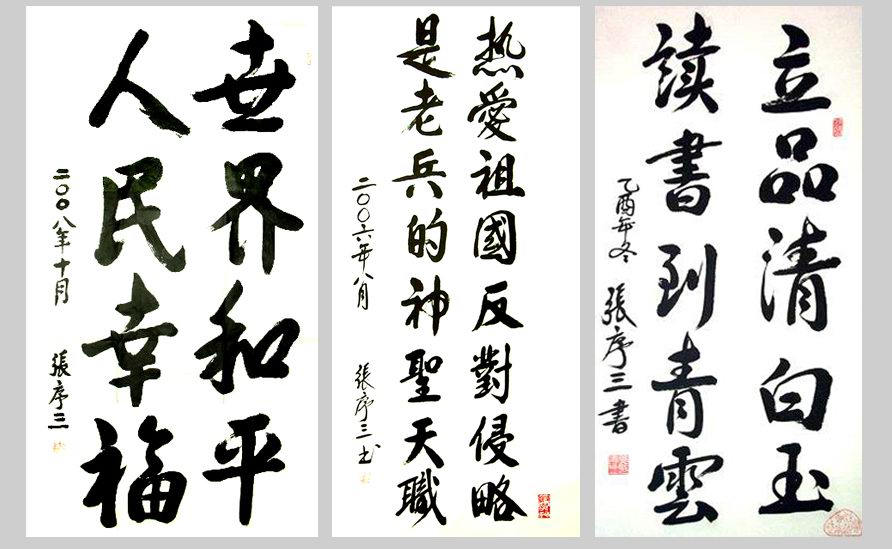 世界和平
人民幸福
二〇〇八年十月 張序三
热愛祖國反對侵略
是老兵的神聖天職
二〇〇六年八月 張序三书
立品清白玉
读書到青雲
乙酉年冬 張序三書